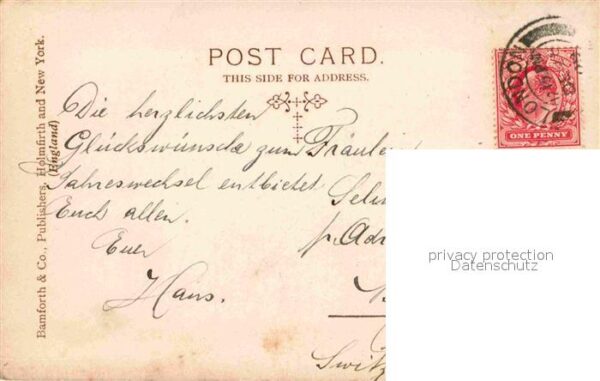 POST CARD.
THIS SIDE FOR ADDRESS.
Bamforth & Co., Publishers, Holmfirth and New York.
(England)
LONDON
ONE PENNY
Die herzlichsten
Glückswünsche zum
Jahreswechsel entbietet
Euch allen.
Euer
Hans.
Fräulei
Selm
p. Adr
Switz
privacy protection
Datenschutz